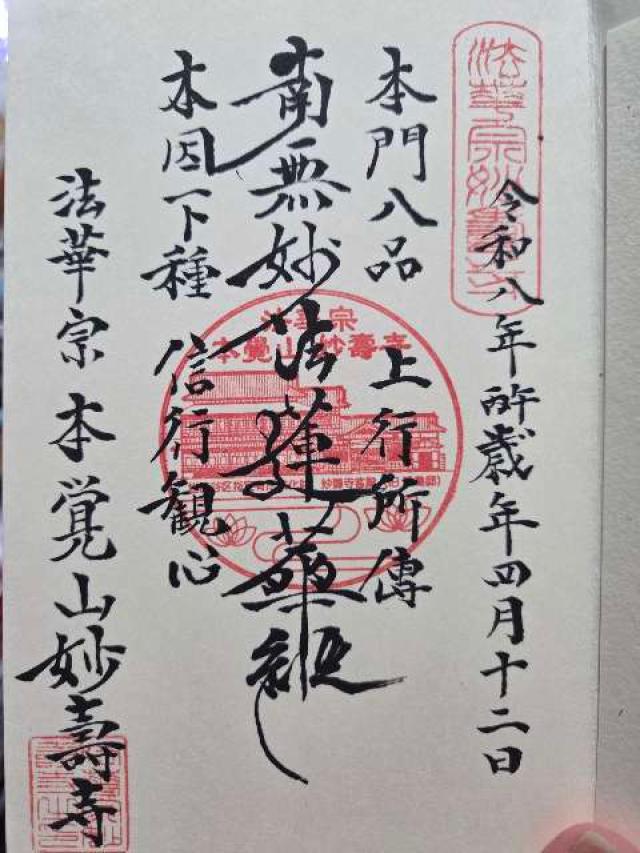 法華宗妙壽寺
令和八年 歳年四月十二日
本門八品 上行所傳
南無妙法蓮華経
本因下種 信行観心
法華宗 本覚山 妙壽寺
法華宗
本覺山 妙壽寺